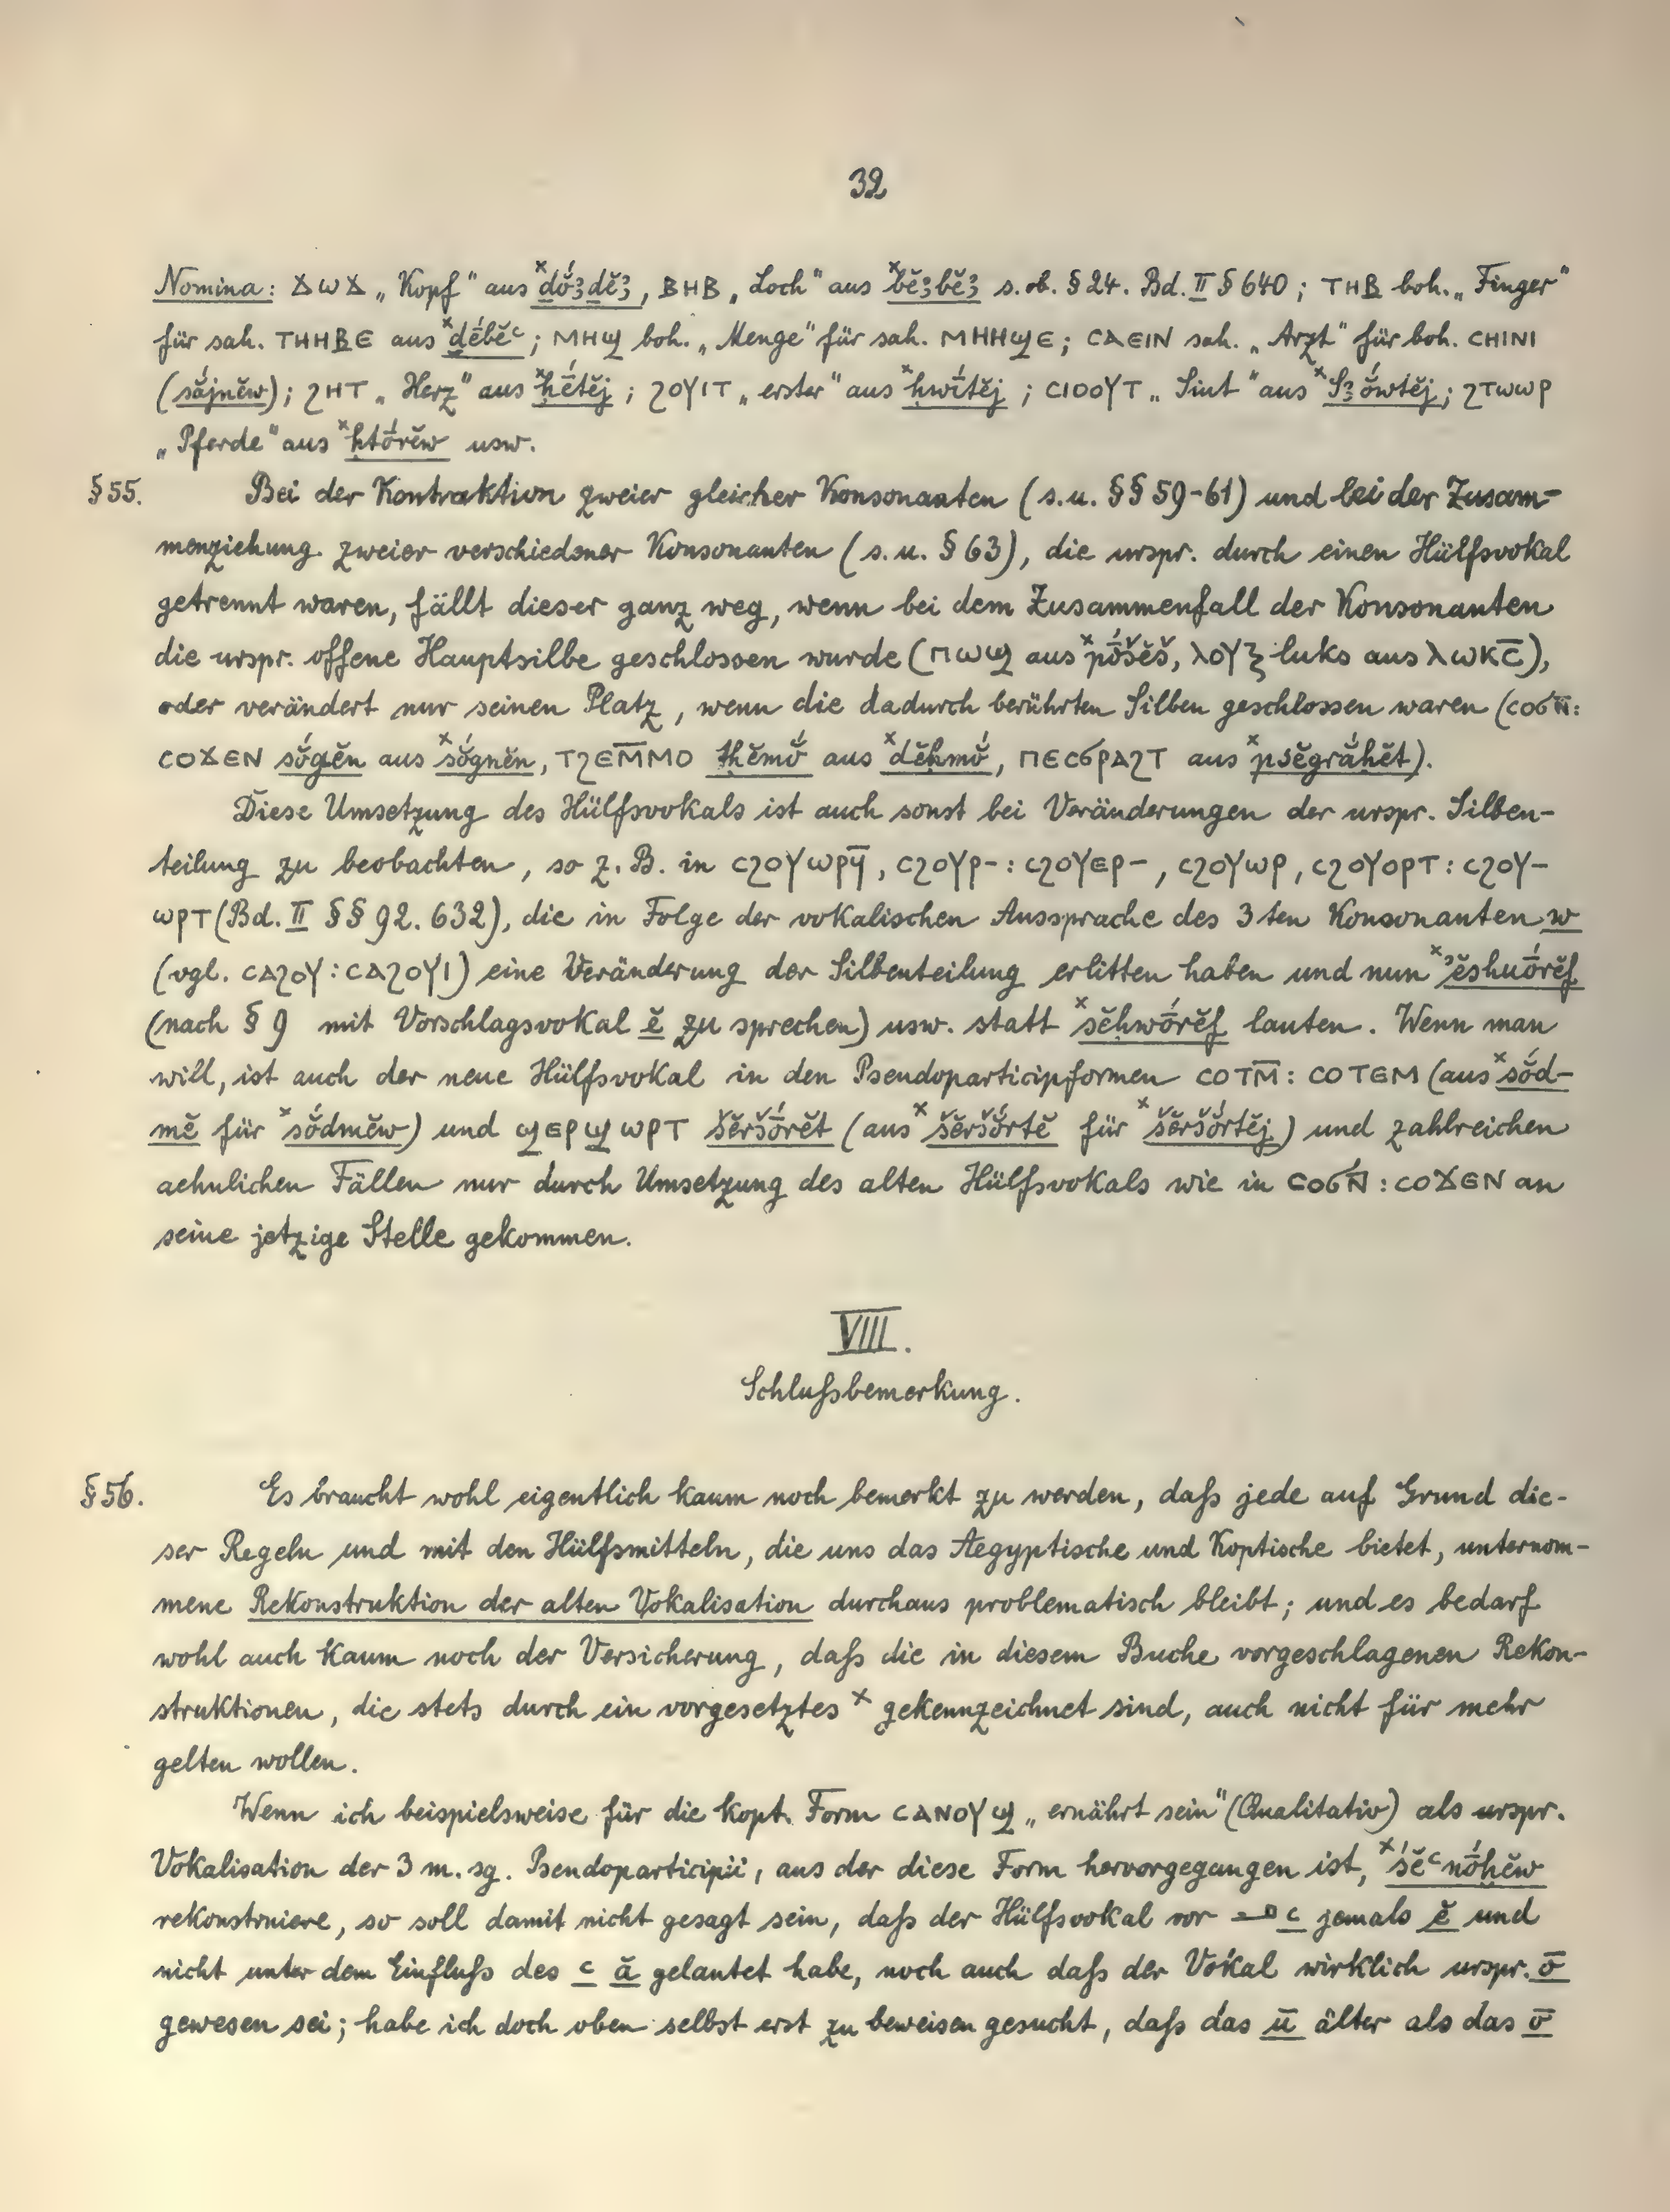 32
Nomina: ϫⲱϫ „Kopf“ aus ˣdŏ́ꜣdĕꜣ, ⲃⲏⲃ „Loch“ aus ˣbĕꜣbĕꜣ s. ob. § 24. Bd. II § 640; ⲧⲏⲃ boh. „Finger“
für sah. ⲧⲏⲏⲃⲉ aus ˣḏēbĕꜥ; ⲙⲏϣ boh. „Menge“ für sah. ⲙⲏⲏϣⲉ; ⲥⲁⲉⲓⲛ sah. „Arzt“ für boh. ⲥⲏⲓⲛⲓ
(sắjnĕw); ϩⲏⲧ „Herz“ aus ˣḥḗtĕj; ϩⲟⲩⲓⲧ „erster“ aus ˣḥwī́tĕj; ⲥⲓⲟⲟⲩⲧ „Siut“ aus ˣSꜣṓwtĕj; ϩⲧⲱⲱⲣ
„Pferde“ aus ˣḥtṓrĕw usw.
§ 55. Bei der Kontraktion zweier gleicher Konsonanten (s. u. §§ 59-61) und bei der Zusam-
menziehung zweier verschiedener Konsonanten (s. u. § 63), die urspr. durch einen Hülfsvokal
getrennt waren, fällt dieser ganz weg, wenn bei dem Zusammenfall der Konsonanten
die urspr. offene Hauptsilbe geschlossen wurde (ⲡⲱϣ aus ˣpṓšĕš, ⲗⲟⲩⲝ luks aus ⲗⲱⲕⲥ̄),
oder verändert nur seinen Platz, wenn die dadurch berührten Silben geschlossen waren (ⲥⲟϭⲛ̄:
ⲥⲟϫⲉⲛ sŏ́gĕn aus ˣsŏ́gnĕn, ⲧϩⲉⲙ̄ⲙⲟ tḥĕmŏ́ aus ˣdĕḥmŏ́, ⲡⲉⲥϭⲣⲁϩⲧ aus ˣpsĕgrắḥĕt).
Diese Umsetzung des Hülfsvokals ist auch sonst bei Veränderungen der urspr. Silben-
teilung zu beobachten, so z. B. in ⲥϩⲟⲩⲱⲣϥ̄, ⲥϩⲟⲩⲣ-: ⲥϩⲟⲩⲉⲣ-, ⲥϩⲟⲩⲱⲣ, ⲥϩⲟⲩⲟⲣⲧ: ⲥϩⲟⲩ-
ⲱⲣⲧ (Bd. II §§ 92. 632), die in Folge der vokalischen Aussprache des 3ten Konsonanten w
(vgl. ⲥⲁϩⲟⲩ: ⲥⲁϩⲟⲩⲓ) eine Veränderung der Silbenteilung erlitten haben und nun ˣʾĕsḥuṓrĕf
(nach § 9 mit Vorschlagsvokal ĕ zu sprechen) usw. statt ˣsĕḥwṓrĕf lauten. Wenn man
will, ist auch der neue Hülfsvokal in den Pseudoparticipformen ⲥⲟⲧⲙ̄: ⲥⲟⲧⲉⲙ (aus ˣsŏ́d-
mĕ für ˣsŏ́dmĕw) und ϣⲉⲣϣⲱⲣⲧ šĕršṓrĕt (aus ˣšĕršŏ́rtĕ für ˣšĕršŏ́rtĕj) und zahlreichen
aehnlichen Fällen nur durch Umsetzung des alten Hülfsvokals wie in ⲥⲟϭⲛ̄: ⲥⲟϫⲉⲛ an
seine jetzige Stelle gekommen.
VIII.
Schlußbemerkung.
§ 56. Es braucht wohl eigentlich kaum noch bemerkt zu werden, daß jede auf Grund die-
ser Regeln und mit den Hülfsmitteln, die uns das Aegyptische und Koptische bietet, unternom-
mene Rekonstruktion der alten Vokalisation durchaus problematisch bleibt; und es bedarf
wohl auch kaum noch der Versicherung, daß die in diesem Buche vorgeschlagenen Rekon-
struktionen, die stets durch ein vorgesetztes ˣ gekennzeichnet sind, auch nicht für mehr
gelten wollen.
Wenn ich beispielsweise für die kopt. Form ⲥⲁⲛⲟⲩϣ „ernährt sein“ (Qualitativ) als urspr.
Vokalisation der 3 m. sg. Pseudoparticipii, aus der diese Form hervorgegangen ist, ˣśĕꜥnṓḫĕw
rekonstruiere, so soll damit nicht gesagt sein, daß der Hülfsvokal vor 𓂝 ꜥ jemals ĕ und
nicht unter dem Einfluß des ꜥ ă gelautet habe, noch auch daß der Vokal wirklich urspr. ō
gewesen sei; habe ich doch oben selbst erst zu beweisen gesucht, daß das ū älter als das ō